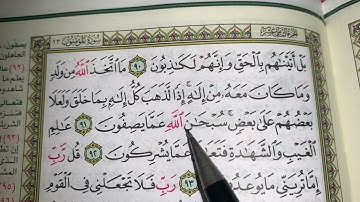 سُورَةُ المُؤْمِنُونَ ٢٣
بَلْ أَتَيْنَٰهُم بِٱلْحَقِّ وَإِنَّهُمْ لَكَٰذِبُونَ ٩٠ مَا ٱتَّخَذَ ٱللَّهُ مِن وَلَدٍ
وَمَا كَانَ مَعَهُۥ مِنْ إِلَٰهٍ ۚ إِذًا لَّذَهَبَ كُلُّ إِلَٰهٍۭ بِمَا خَلَقَ وَلَعَلَا
بَعْضُهُمْ عَلَىٰ بَعْضٍ ۚ سُبْحَٰنَ ٱللَّهِ عَمَّا يَصِفُونَ ٩١ عَٰلِمِ
ٱلْغَيْبِ وَٱلشَّهَٰدَةِ فَتَعَٰلَىٰ عَمَّا يُشْرِكُونَ ٩٢ قُل رَّبِّ
إِمَّا تُرِيَنِّى مَا يُوعَدُونَ ٩٣ رَبِّ فَلَا تَجْعَلْنِى فِى ٱلْقَوْمِ